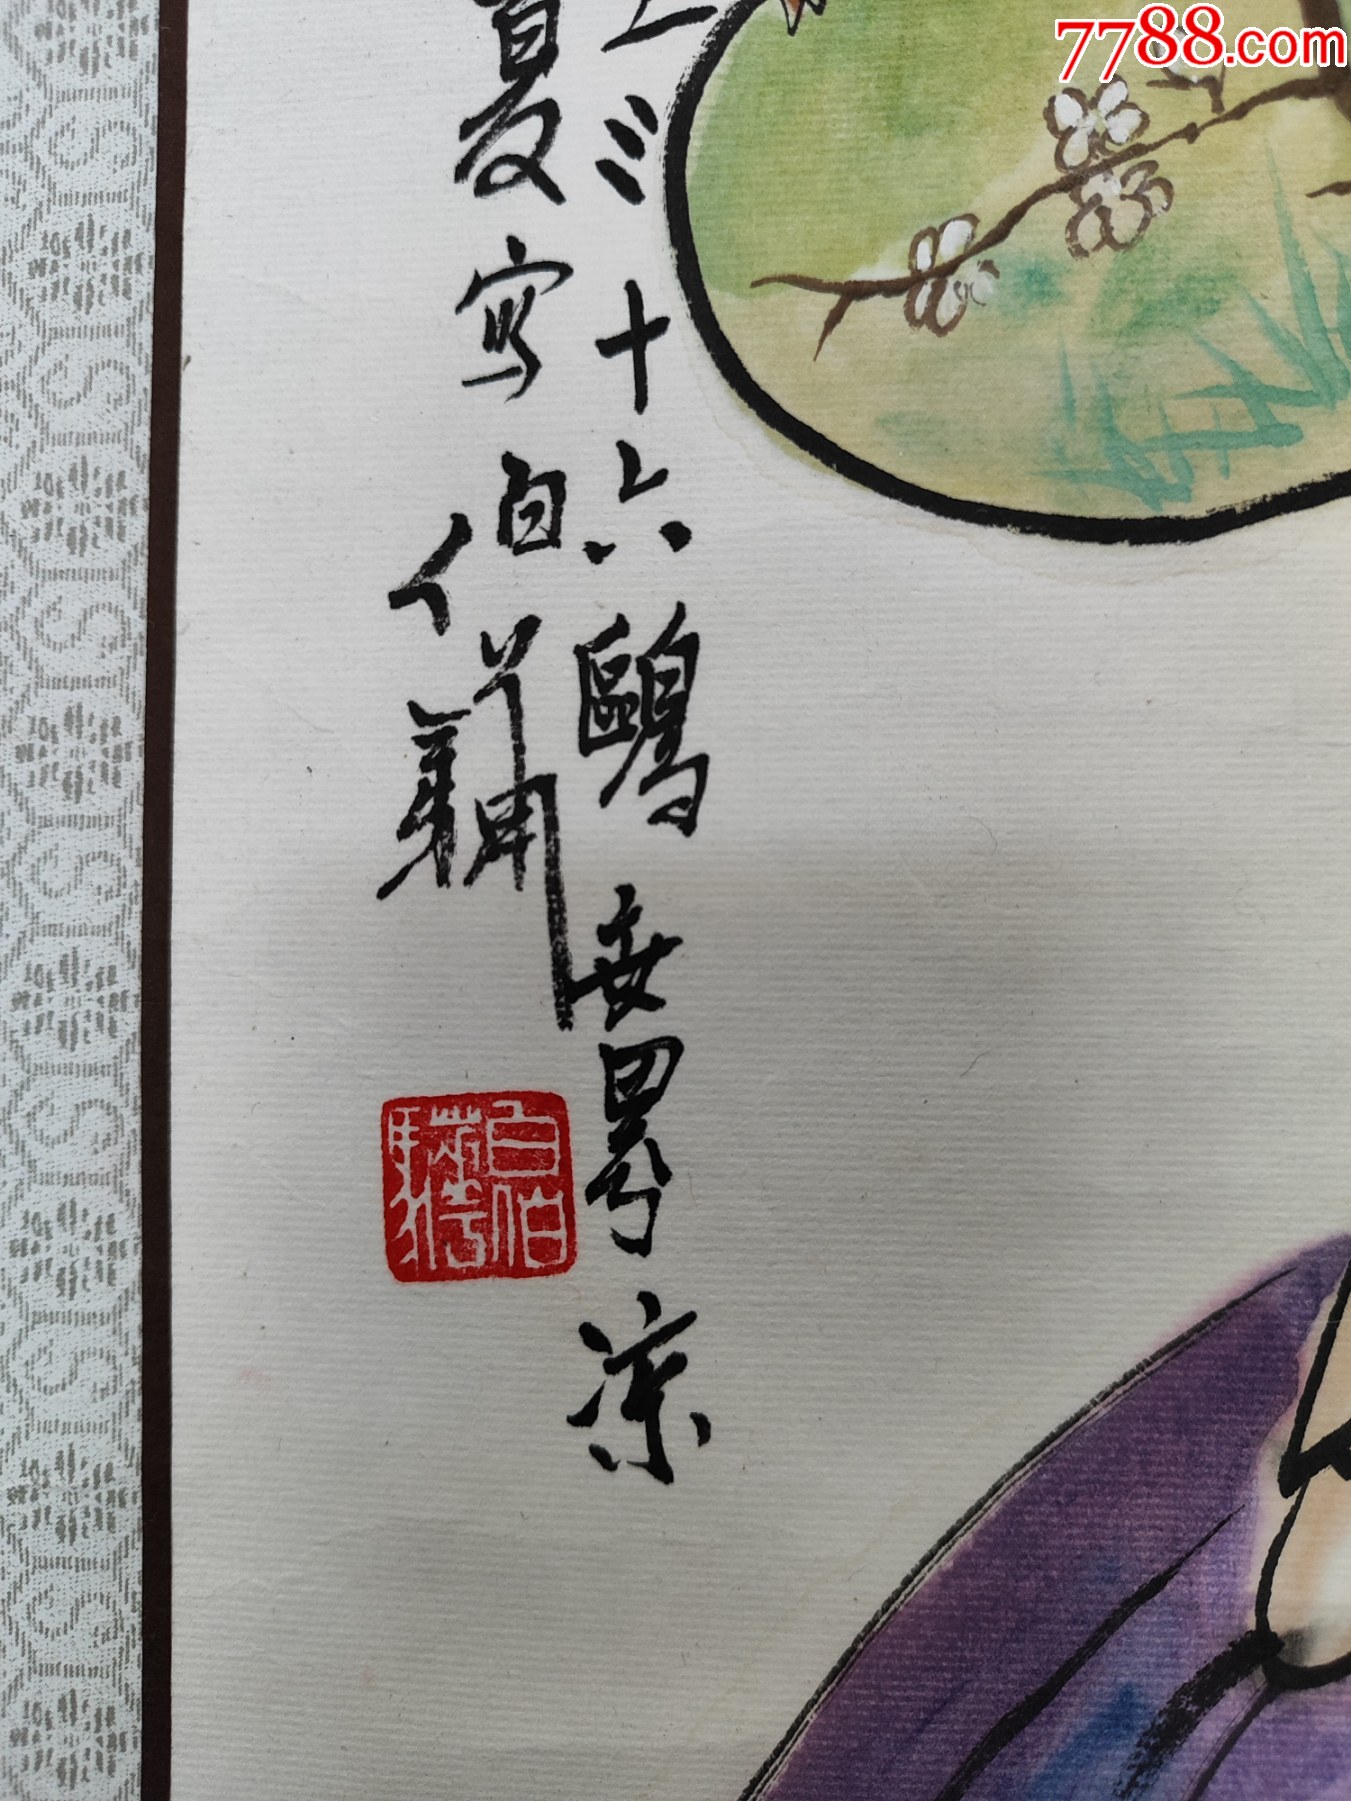 7788.com
三十六鷗 涼
夏写 白伯驊
白伯驊